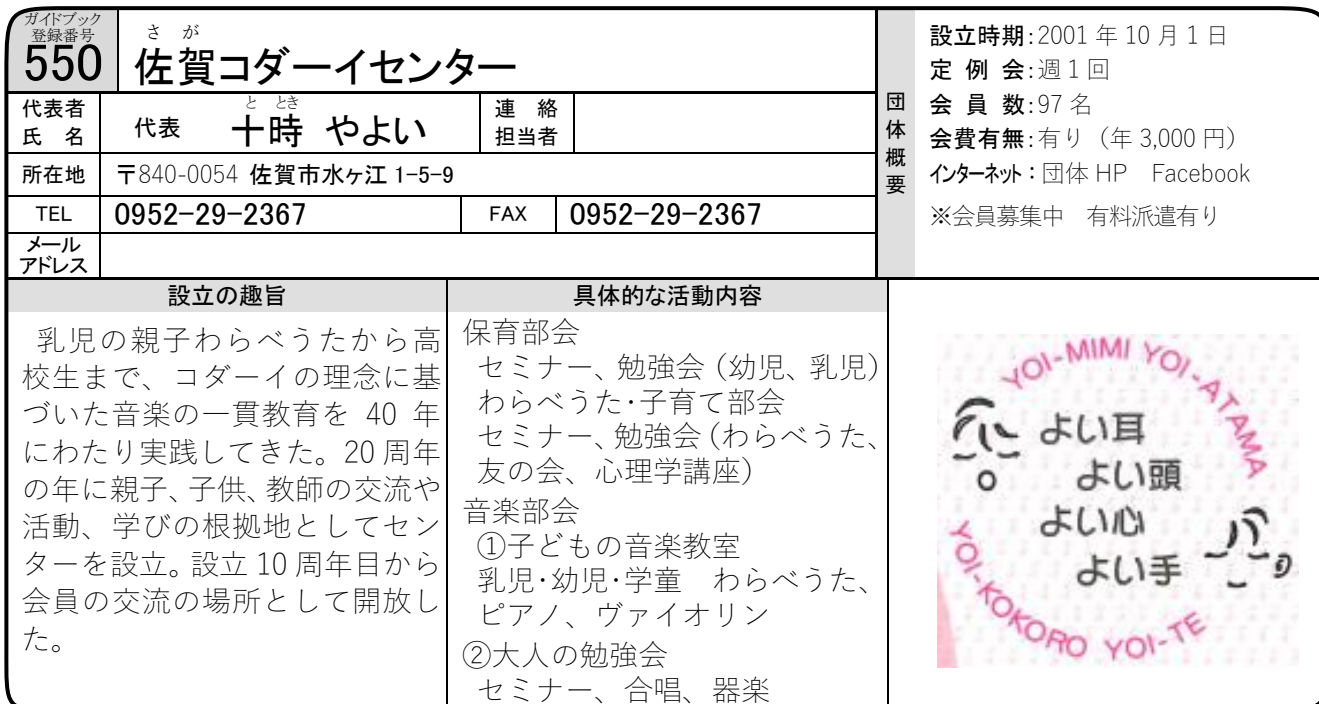 ガイドブック
登録番号
550
さが
佐賀コダーイセンター
代表者
氏 名
代表
ととき
十時 やよい
連 絡
担当者
所在地
〒840-0054 佐賀市水ヶ江 1-5-9
TEL
0952-29-2367
FAX
0952-29-2367
メール
アドレス
団体概要
設立時期:2001 年 10 月 1 日
定 例 会:週 1 回
会 員 数:97 名
会費有無:有り（年 3,000 円）
インターネット：団体 HP Facebook
※会員募集中 有料派遣有り
設立の趣旨
乳児の親子わらべうたから高
校生まで、コダーイの理念に基
づいた音楽の一貫教育を 40 年
にわたり実践してきた。20 周年
の年に親子、子供、教師の交流や
活動、学びの根拠地としてセン
ターを設立。設立 10 周年目から
会員の交流の場所として開放し
た。
具体的な活動内容
保育部会
セミナー、勉強会（幼児、乳児）
わらべうた・子育て部会
セミナー、勉強会（わらべうた、
友の会、心理学講座）
音楽部会
①子どもの音楽教室
乳児・幼児・学童 わらべうた、
ピアノ、ヴァイオリン
②大人の勉強会
セミナー、合唱、器楽
YOI-MIMI YOI-ATAMA
よい耳
よい頭
よい心
よい手
YOI-KOKORO YOI-TE